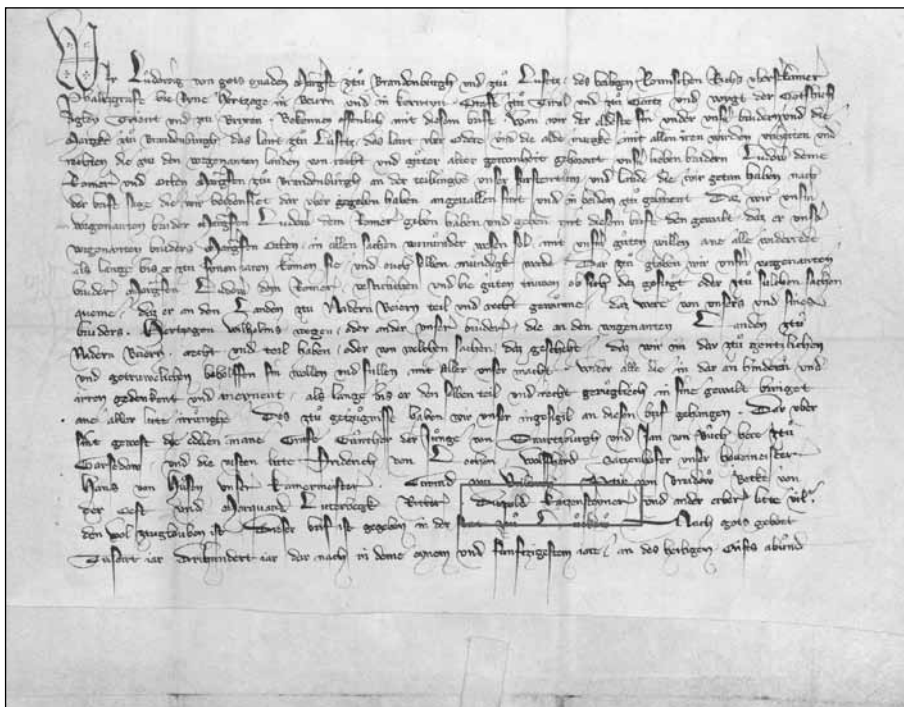 Wir Ludowig von gots gnaden Margfe ztu Brandenburgh vnd ztu Lusitz, des heiligen Romischen Richs vberst kamer
Phallenzgrafe bie Ryne Hertzoge in Beiern vnd in kernten, Grafe ztu Tirol vnd ztu Gortz vnd voyt der Gotshus
Agley Trient vnd ztu Brixen, Bekennen offenlich mit disem brife Wan wir der aldiste sin vnder vnsn brudern vnd die
Margke ztu Brandenburgh das lant ztu Lusitz, das lant vber odere vnd die alde margke mit allen iren wirden vnd
rechten die ztu den vorgenanten landen von recht vnd guter alter gewonheit gehoret vnsn lieben brudern Ludow deme
Romer vnd Otten Margfen ztu Brandenburgh an der teilinghe vnser furstentum vnd lande die wir getan haben nach
der brife sage die wir dar vber gegeben haben angeuallen sint vnd in beiden ztu gehoret Daz wir vnsm
vorgenanten bruder Margfen Ludow dem Romer geben haben vnd geben mit disem brife den gewalt daz er vnsers
vorgenanten bruders Margfen Otten, in allen sachen vormunder wesen sol, mit vnsm guten willen ane alle widerrede
als lange bis er ztu sinen iaren komen sie, vnd ouch selben mundigk werde Dar ztu globen wir vnsm vorgenanten
bruder Margfen Ludow dem Romer, vestichlich vnd bie guten truwen ob sich daz gefugt oder ztu sulchen sachen
queme, daz er an den Landen ztu Nidern Beiern teil vnd recht gewunne, daz were von vnsers vnd sines
bruders, Hertzogen Wilhelms wegen, oder ander vnser bruder, die an den vorgenanten Landen ztu
Nidern Beiern, recht vnd teil haben, oder von welchen sachen, daz geschehe, daz wir im dar ztu
vnd getruwelichen behelffen sin wollen vnd sullen mit aller vnser macht, wider alle die in dar an hinderen vnd
irren gedenkent vnd meynent, als lange bis er den selben teil vnd recht geruglich in sine gewalt bringet
ane aller lute irrunghe Des ztu getzugnisse haben wir vnser ingesigil an disen brif gehangen, Dar vber
sint gewest die edelen mane Grafe Gunther der Junge von Swartzburgh vnd Jan von Buch here ztu
Garsedow, vnd die vesten lute Fridrich von Lochen Wolfhard Satzenhofer vnser houemeister
Hans von Husen vnser kamermeister, von Bredow Betke von
der Ost vnd Marquard Luterbegk Ritter Diepold Katzensteiner vnd ander erber lute vil,
den wol ztugelouben ist Dieser brif ist gegeben in der stat ztu Luckow, Nach gots geburt
Tusent iar Drihundert iar dar nach in deme eynem vnd funfzigestem iare, an des heiligen Crists abund